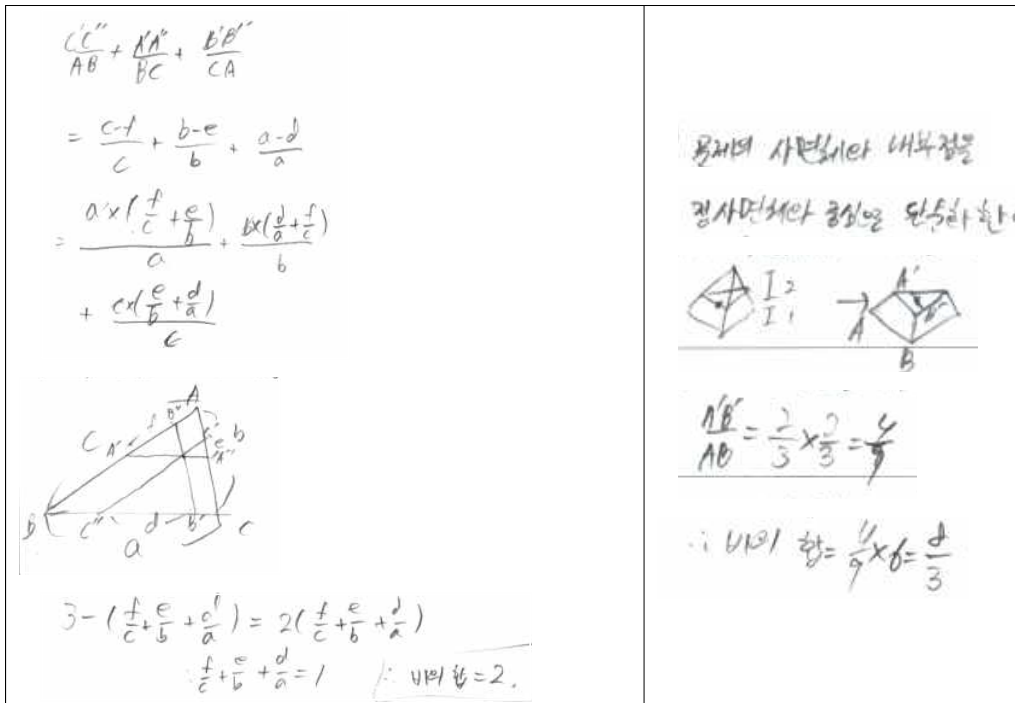 C'C''/AB + A'A''/BC + B'B''/CA
= (c-f)/c + (b-e)/b + (a-d)/a
= a×(f/c + e/b)/a + b×(d/a + f/c)/b
+ c×(e/b + d/a)/c
A
B''
f
C'
C
A'
e
b
A''
B
C''
d
B'
C
a
3-(f/c + e/b + d/a) = 2(f/c + e/b + d/a)
∴ f/c + e/b + d/a = 1 ∴ 비의 합=2.
문제의 사면체와 내부점을
정사면체와 중심으로 단순화 한
I 2
I 1
→
A'
A
B'
B
A'B'/AB = 2/3 × 2/3 = 4/9
∴ 비의 합= 4/9×6= 8/3